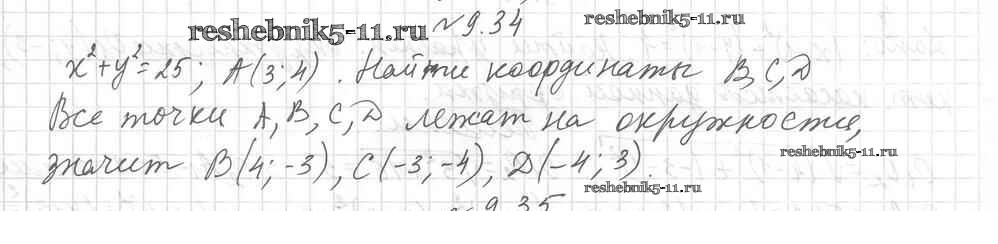 reshebnik5-11.ru №9.34 reshebnik5-11.ru
x²+y²=25; A(3;4). Найти координаты B,C,D
Все точки A,B,C,D лежат на окружности,
reshebnik5-11.ru
значит B(4;-3), C(-3;-4), D(-4;3).
reshebnik5-11.ru
№9.35